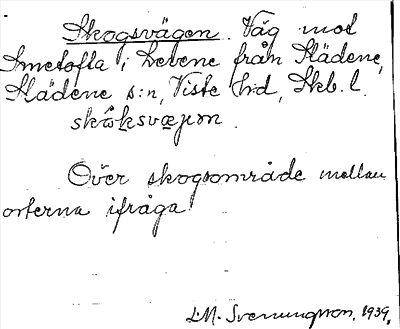 Skogsvägen. Väg mot
Smetofta i Levene från Slädene,
Slädene s:n, Viste h:d, Skb. l.
Över skogsområde mellan
orterna ifråga
L.M. Svenungsson, 1939.